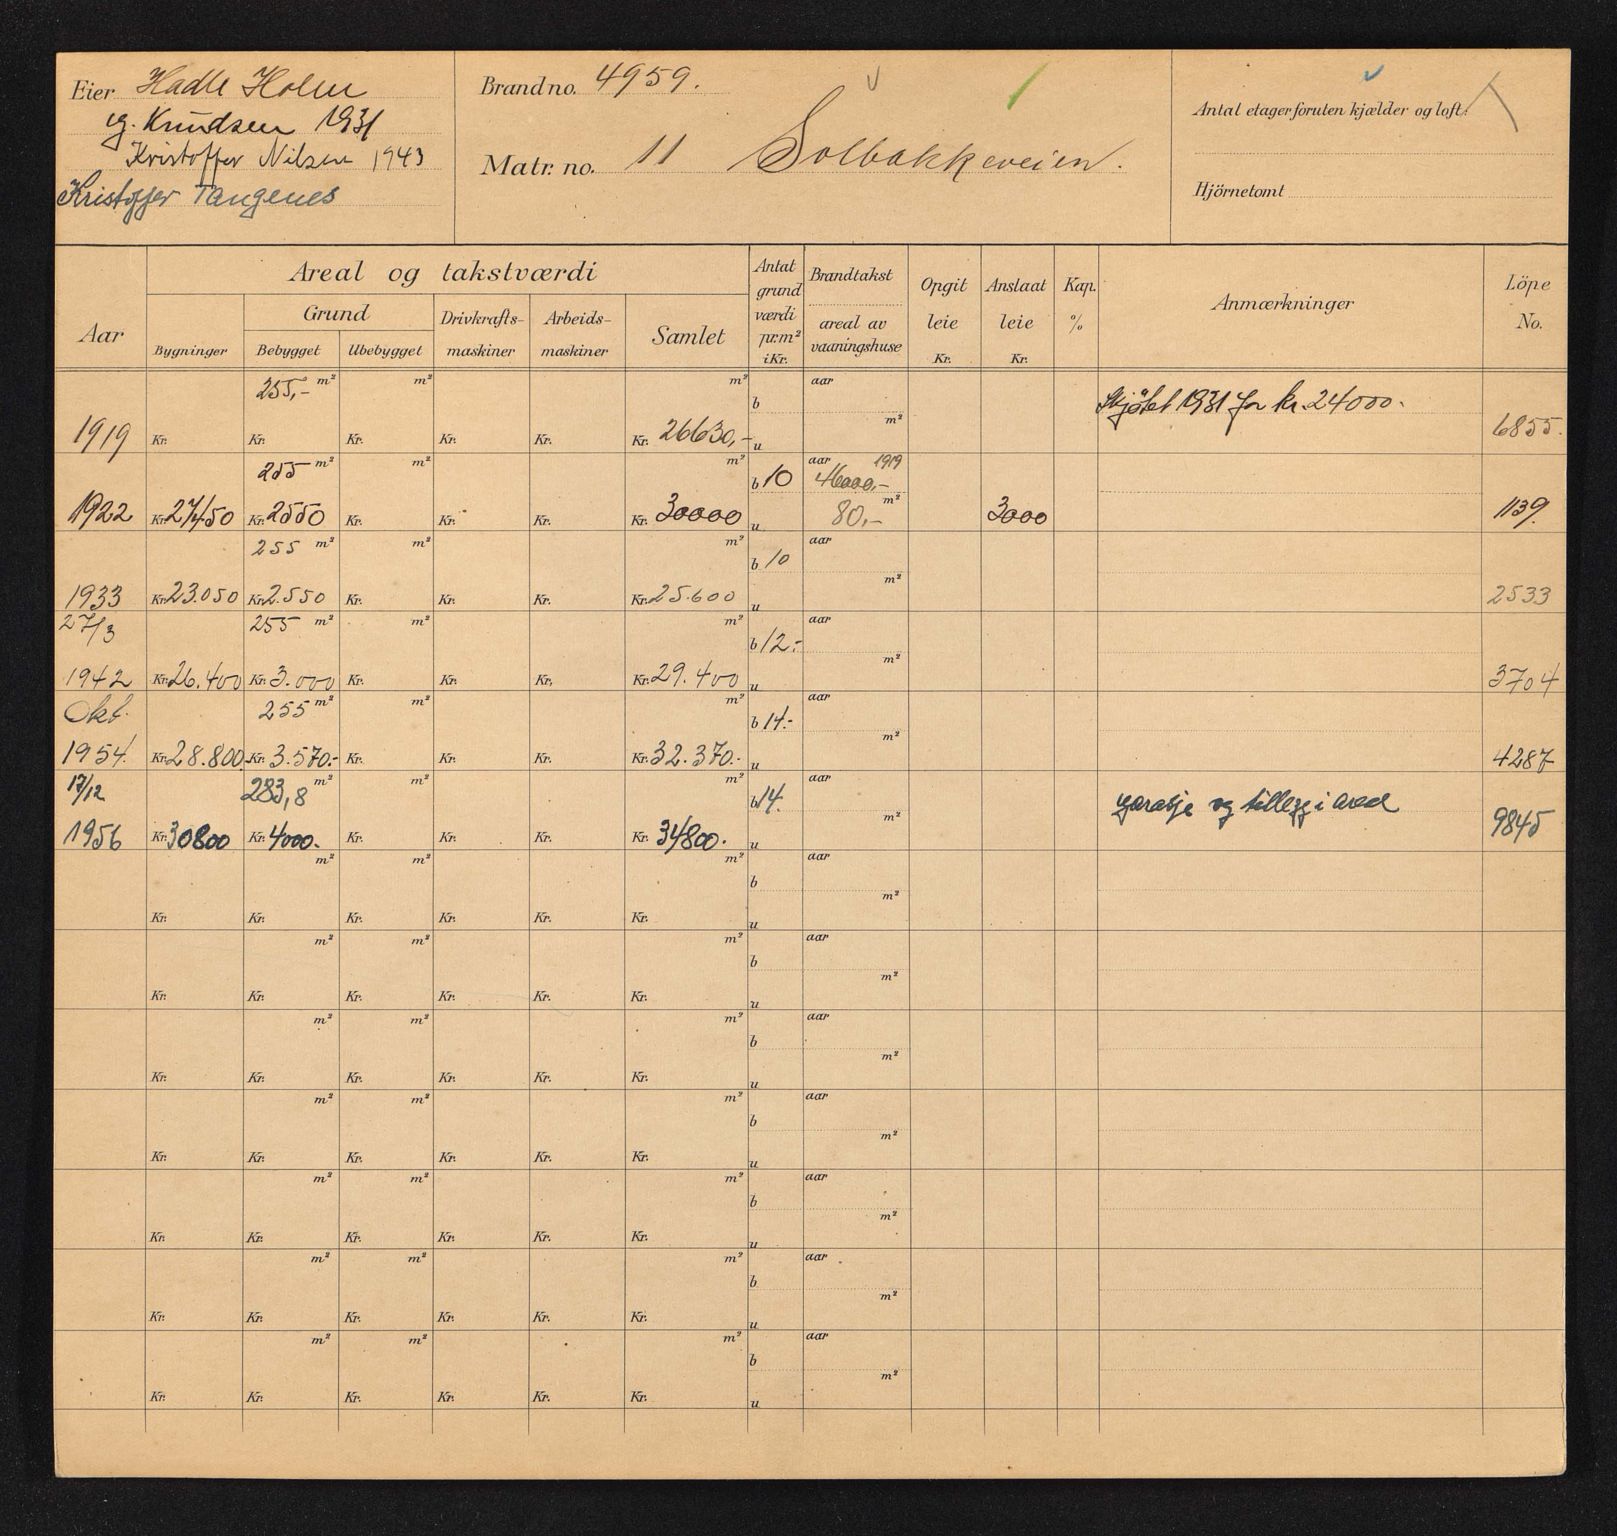 Eier Hadle Holm
og. Knudsen 1931
Kristoffer Nilsen 1943
Kristoffer Tangenes
Brand no. 4959.
Matr. no. 11 Solbakkeveien.
Antal etager foruten kjælder og loft:
Hjörnetomt
Aar
Areal og takstværdi
Bygninger
Grund
Bebygget
Ubebygget
Drivkrafts-
maskiner
Arbeids-
maskiner
Samlet
Antat
grund
værdi
pr. m²
i Kr.
Brandtakst
areal av
vaaningshuse
Opgit
leie
Kr.
Anslaat
leie
Kr.
Kap.
%
Anmærkninger
Löpe
No.
255,- m² m² m² b aar Skjötet 1931 for kr. 24000.
1919 Kr. Kr. Kr. Kr. Kr. Kr. 26630,- u m² 6855.
255 m² m² m² b 10 aar 1919 46000,-
1922 Kr. 27450 Kr. 2550 Kr. Kr. Kr. Kr. 30000 u 80,- m² 3000 1139.
255 m² m² m² b 10 aar
1933 Kr. 23.050 Kr. 2.550 Kr. Kr. Kr. Kr. 25.600 u m² 2533
27/3 255 m² m² m² b 12.- aar
1942 Kr. 26.400 Kr. 3.000 Kr. Kr. Kr. Kr. 29.400 u m² 3704
Okt. 255 m² m² m² b 14.- aar
1954. Kr. 28.800.- Kr. 3.570.- Kr. Kr. Kr. Kr. 32.370.- u m² 4287
17/12 283,8 m² m² m² b 14. aar garasje og tillegg i areal
1956 Kr. 30800 Kr. 4000.- Kr. Kr. Kr. Kr. 34800. u m² 9845
m² m² m² b aar
Kr. Kr. Kr. Kr. Kr. Kr. u m²
m² m² m² b aar
Kr. Kr. Kr. Kr. Kr. Kr. u m²
m² m² m² b aar
Kr. Kr. Kr. Kr. Kr. Kr. u m²
m² m² m² b aar
Kr. Kr. Kr. Kr. Kr. Kr. u m²
m² m² m² b aar
Kr. Kr. Kr. Kr. Kr. Kr. u m²
m² m² m² b aar
Kr. Kr. Kr. Kr. Kr. Kr. u m²
m² m² m² b aar
Kr. Kr. Kr. Kr. Kr. Kr. u m²